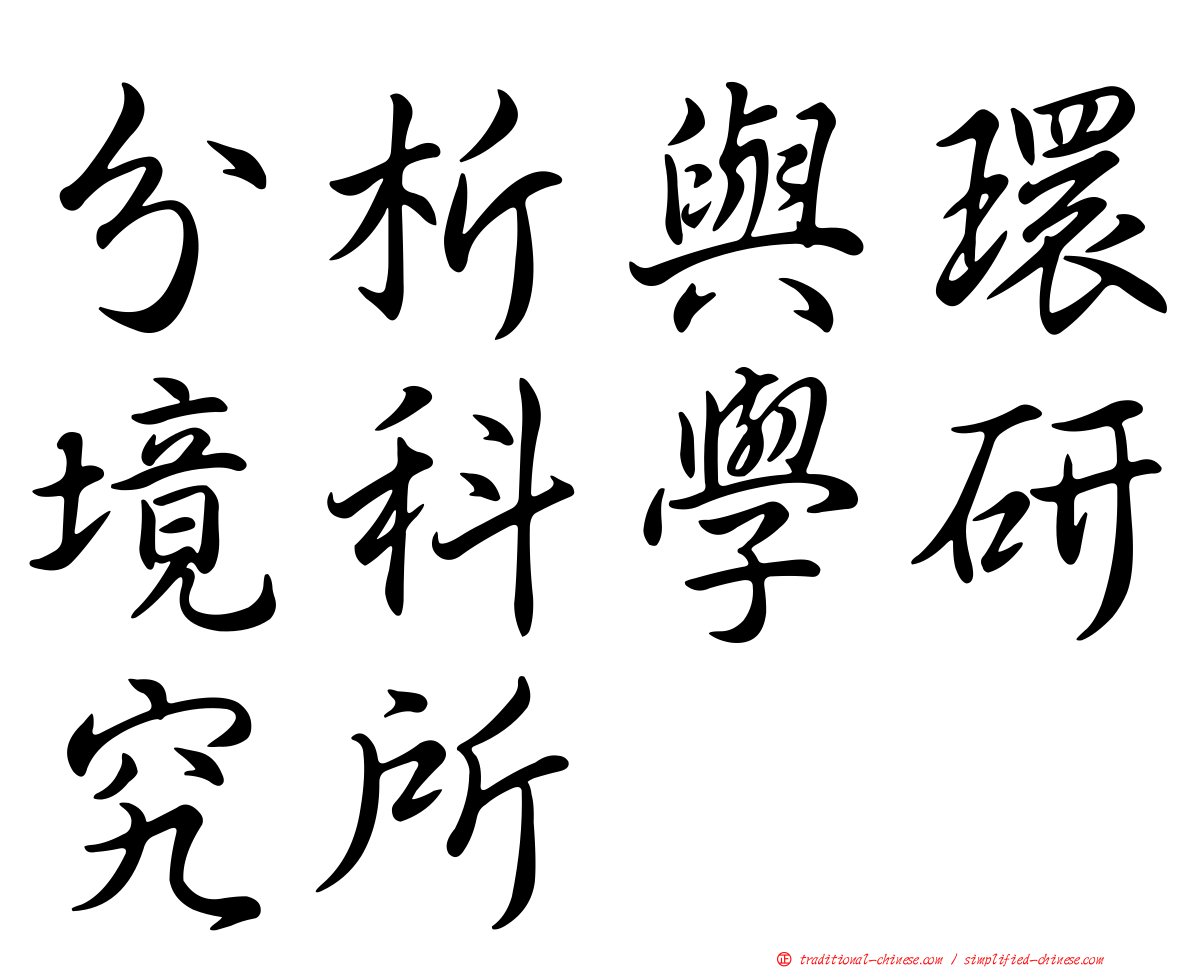 分析與環
境科學研
究所
㊣ traditional-chinese.com / simplified-chinese.com